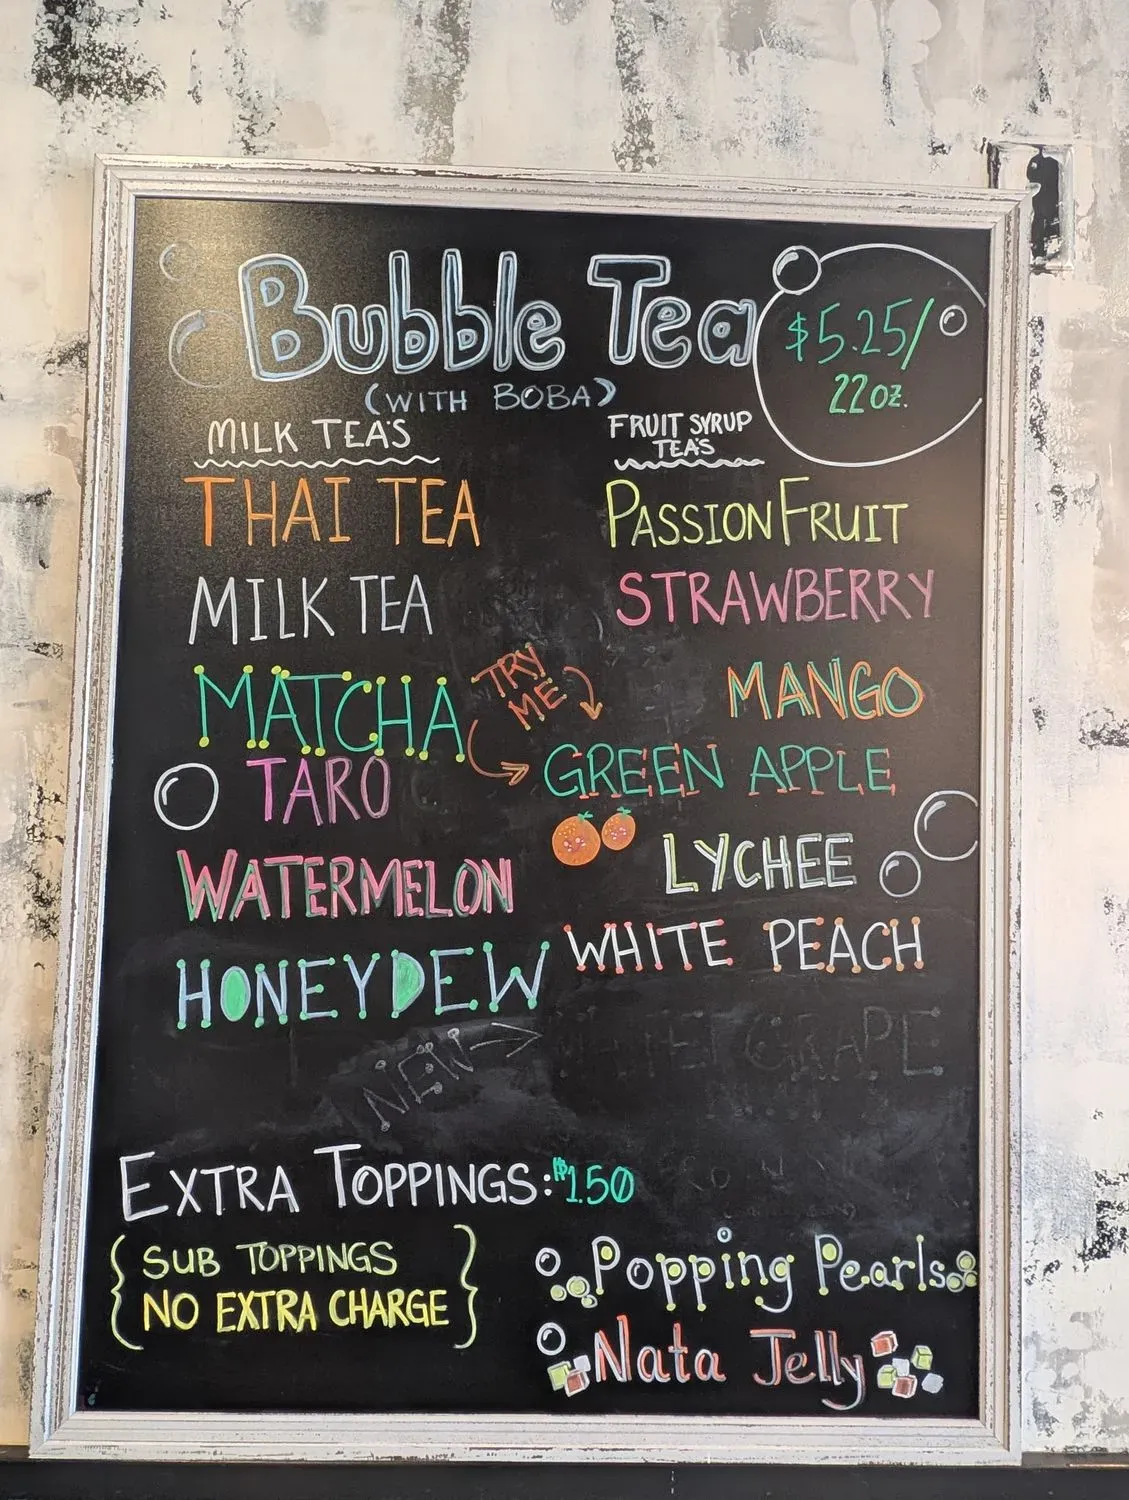 Bubble Tea
(WITH BOBA)
$5.25/
22 oz.
MILK TEA'S
THAI TEA
MILK TEA
MATCHA
TARO
WATERMELON
HONEYDEW
FRUIT SYRUP
TEA'S
PASSIONFRUIT
STRAWBERRY
MANGO
TRY
ME
GREEN APPLE
LYCHEE
WHITE PEACH
NEW
GRAPE
EXTRA TOPPINGS: $1.50
{ SUB TOPPINGS
NO EXTRA CHARGE }
Popping Pearls
Nata Jelly